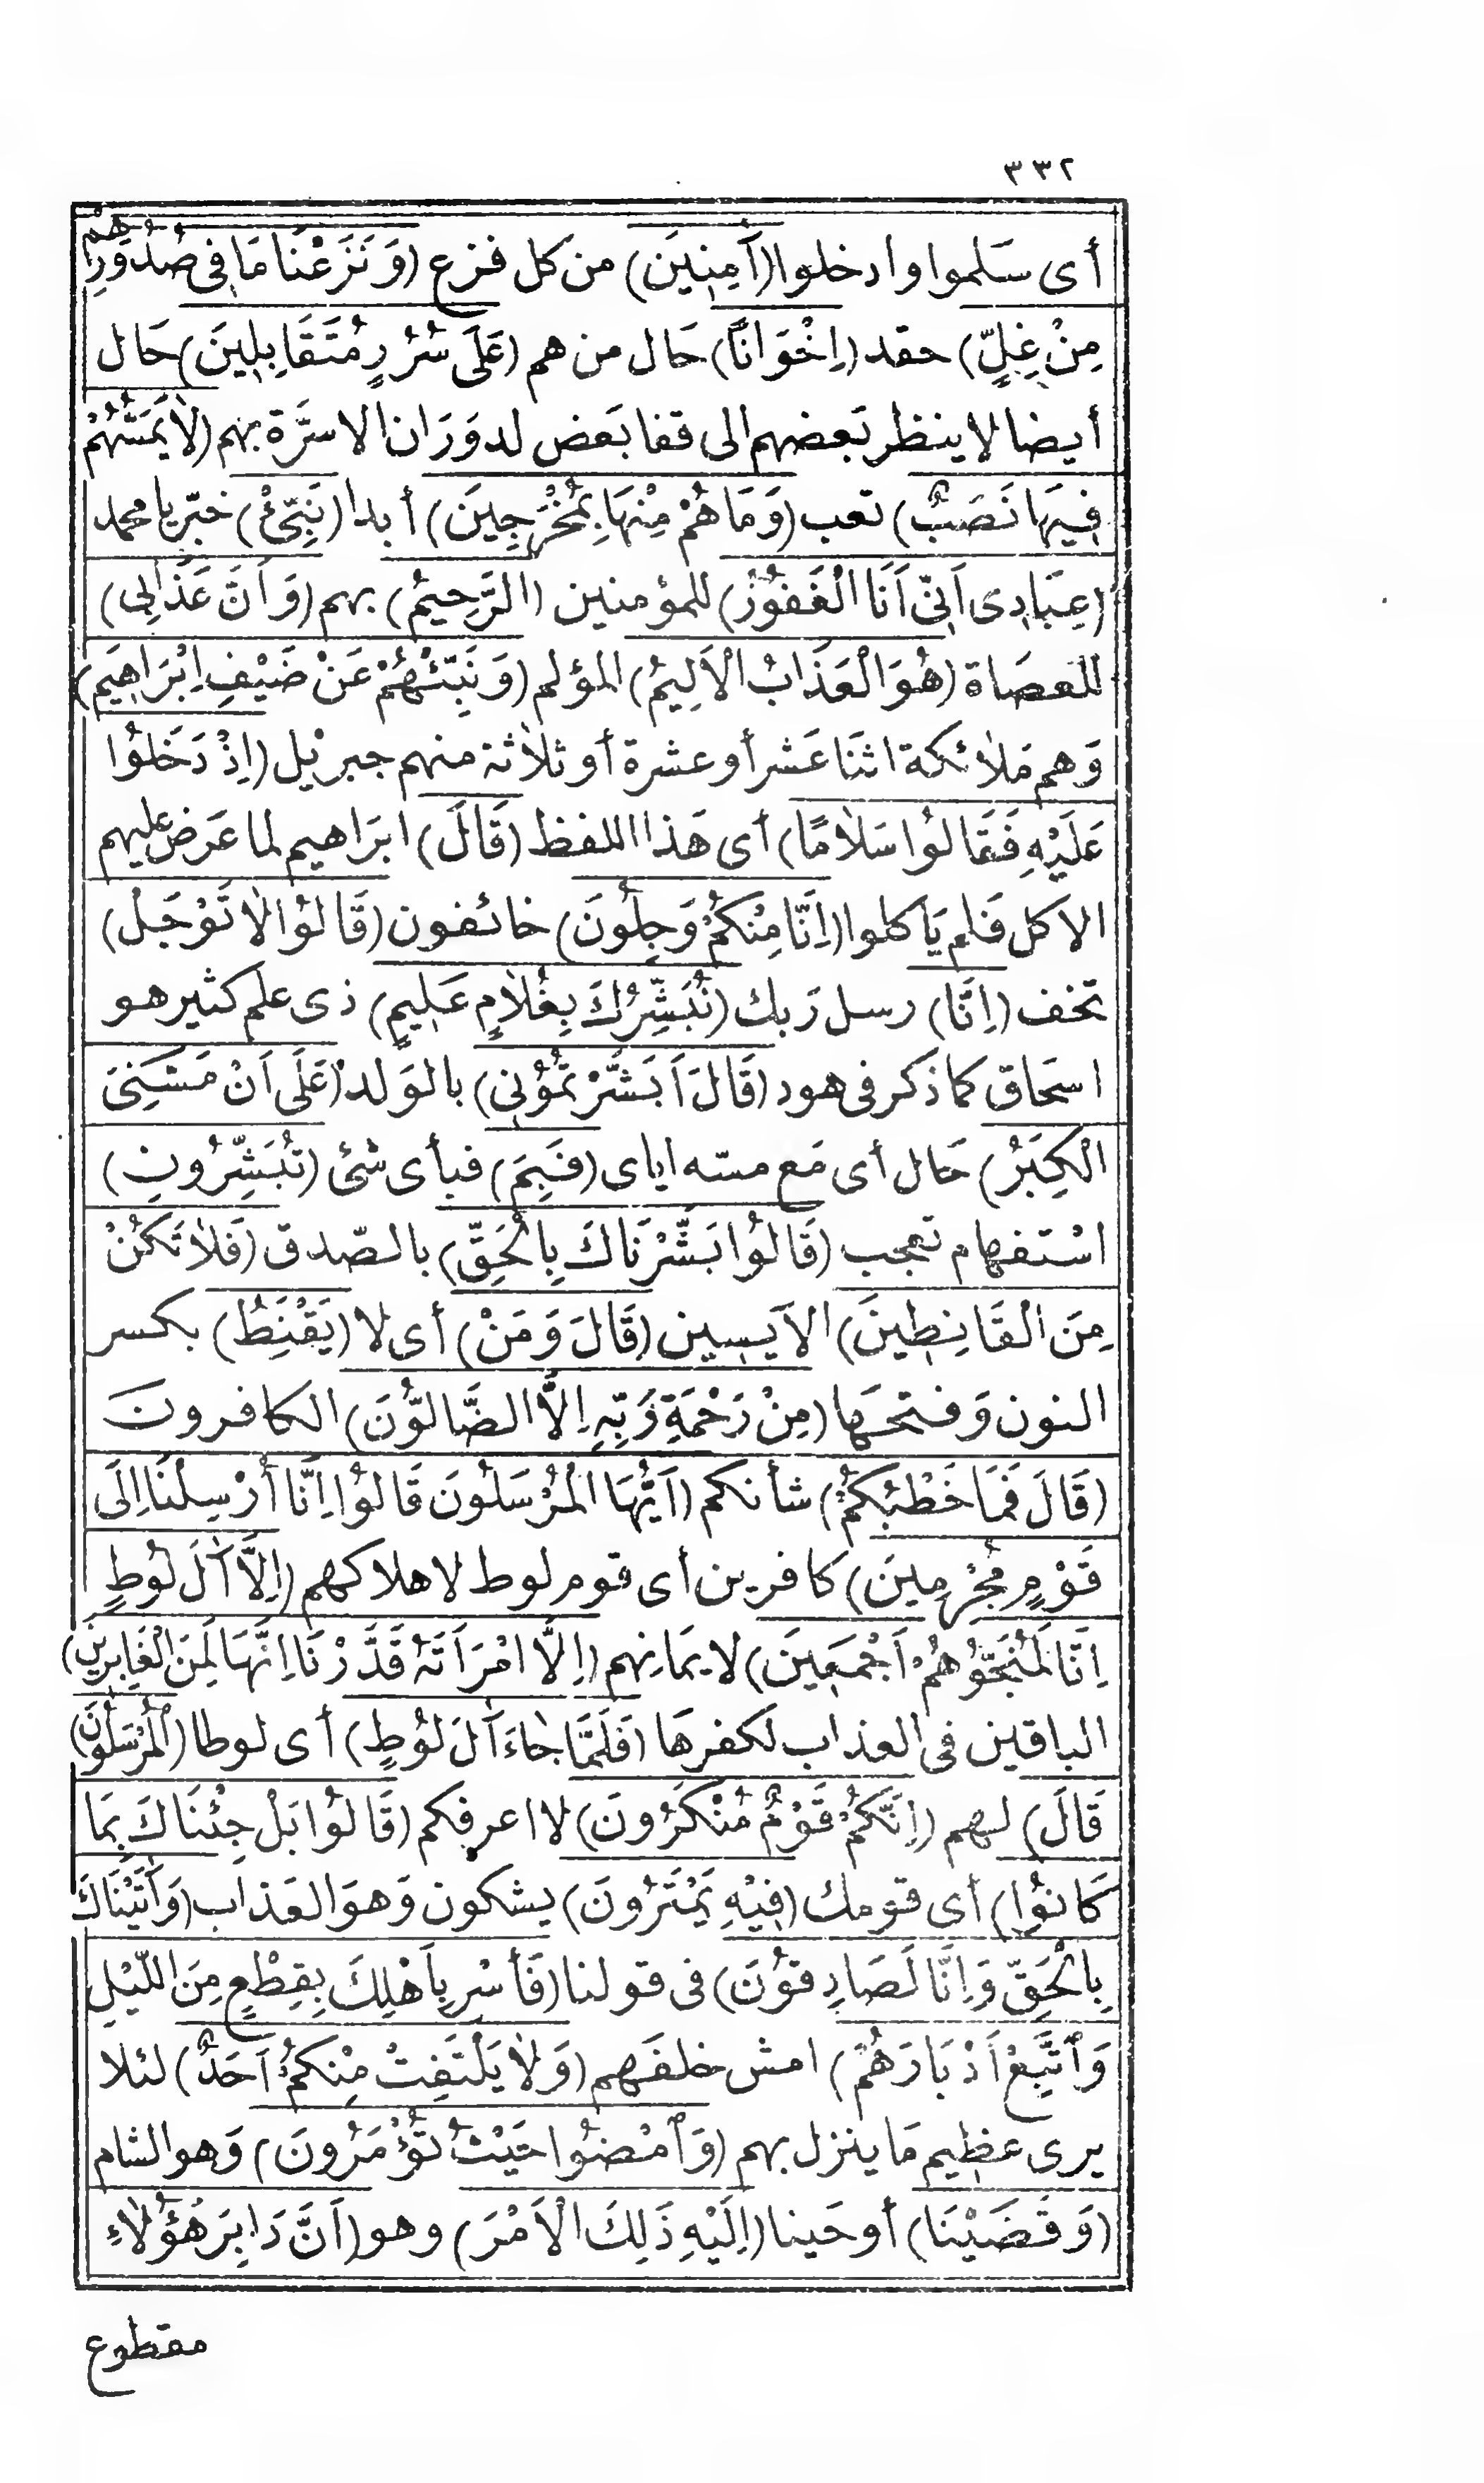 ٣٣٢
أى سَلموا وادخلوا (آمِنِينَ) من كل فزع (وَنَزَعْنَا مَا فِى صُدُورِهِمْ
مِنْ غِلٍّ) حقد (اِخْوَانًا) حَال من هم (عَلَى سُرُرٍ مُتَقَابِلِينَ) حَال
أيضا لا ينظر بَعضهم الى قفا بَعض لدوَرَان الاسرَّة بهم (لاٰ يَمَسُّهُمْ
فِيهَا نَصَبٌ) تعب (وَمَا هُمْ مِنْهَا بِمُخْرَجِينَ) أبدا (نَبِّئْ) خبّر يا محمد
(عِبَادِى اَنِّى اَنَا الْغَفُورُ) للمؤمنين (الرَّحِيمُ) بهم (وَاَنَّ عَذَابِى)
للعصَاة (هُوَ الْعَذَابُ الْاَلِيمُ) المؤلم (وَنَبِّئْهُمْ عَنْ ضَيْفِ اِبْرَاهِيمَ)
وَهم مَلاٰئكة اثنَا عَشر أو عشرة أو ثلاٰثة منهم جبريْل (اِذْ دَخَلُوا
عَلَيْهِ فَقَالُوا سَلاٰمًا) أى هَذا اللفظ (قَالَ) ابرَاهيم لما عَرض عليهم
الاكل فَلم يَأكلوا (اِنَّا مِنْكُمْ وَجِلُونَ) خائفون (قَالُوا لاٰ تَوْجَلْ)
تخف (اِنَّا) رسل رَبك (نُبَشِّرُكَ بِغُلاٰمٍ عَلِيمٍ) ذى علم كثير هو
اسحَاق كما ذَكر فى هود (قَالَ اَبَشَّرْتُمُونِى) بالوَلد (عَلَى اَنْ مَسَّنِىَ
الْكِبَرُ) حَال أى مَع مسّه اياى (فَبِمَ) فبأى شئ (تُبَشِّرُونِ)
اسْتفهام تعجب (قَالُوا بَشَّرْنَاكَ بِالْحَقِّ) بالصّدق (فَلاٰ تَكُنْ
مِنَ الْقَانِطِينَ) الآيسين (قَالَ وَمَنْ) أى لا (يَقْنِطُ) بكسر
النون وَفتحهَا (مِنْ رَحْمَةِ رَبِّهِ اِلاَّ الضَّالُّونَ) الكافرونَ
(قَالَ فَمَا خَطْبُكُمْ) شأنكم (اَيُّهَا الْمُرْسَلُونَ قَالُوا اِنَّا أُرْسِلْنَا اِلَى
قَوْمٍ مُجْرِمِينَ) كافرين أى قوم لوط لاهلاكهم (اِلاَّ آلَ لُوطٍ
اِنَّا لَمُنَجُّوهُمْ اَجْمَعِينَ) لايمَانهم (اِلاَّ امْرَاَتَهُ قَدَّرْنَا اِنَّهَا لَمِنَ الْغَابِرِينَ)
الباقين فى العذاب لكفرهَا (فَلَمَّا جَاءَ آلَ لُوطٍ) أى لوطا (الْمُرْسَلُونَ
قَالَ) لهم (اِنَّكُمْ قَوْمٌ مُنْكَرُونَ) لا اعرفكم (قَالُوا بَلْ جِئْنَاكَ بِمَا
كَانُوا) أى قومك (فِيهِ يَمْتَرُونَ) يشكون وَهوَ العَذاب (وَاَتَيْنَاكَ
بِالْحَقِّ وَاِنَّا لَصَادِقُونَ) فى قولنا (فَأَسْرِ بِاَهْلِكَ بِقِطْعٍ مِنَ اللَّيْلِ
وَاتَّبِعْ اَدْبَارَهُمْ) امش خلفَهم (وَلاٰ يَلْتَفِتْ مِنْكُمْ اَحَدٌ) لئلا
يرى عظيم مَا ينزل بهم (وَامْضُوا حَيْثُ تُؤْمَرُونَ) وَهو الشام
(وَقَضَيْنَا) أوحَينا (اِلَيْهِ ذَلِكَ الْاَمْرَ) وهو (اَنَّ دَابِرَ هَؤُلاٰءِ
مقطوع